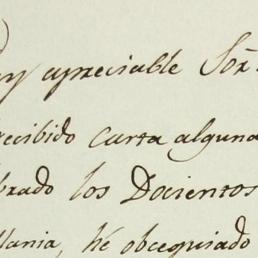 uy apreciable Sor.
recibido carta alguna
brado los Docientos
llania, he obcequiado